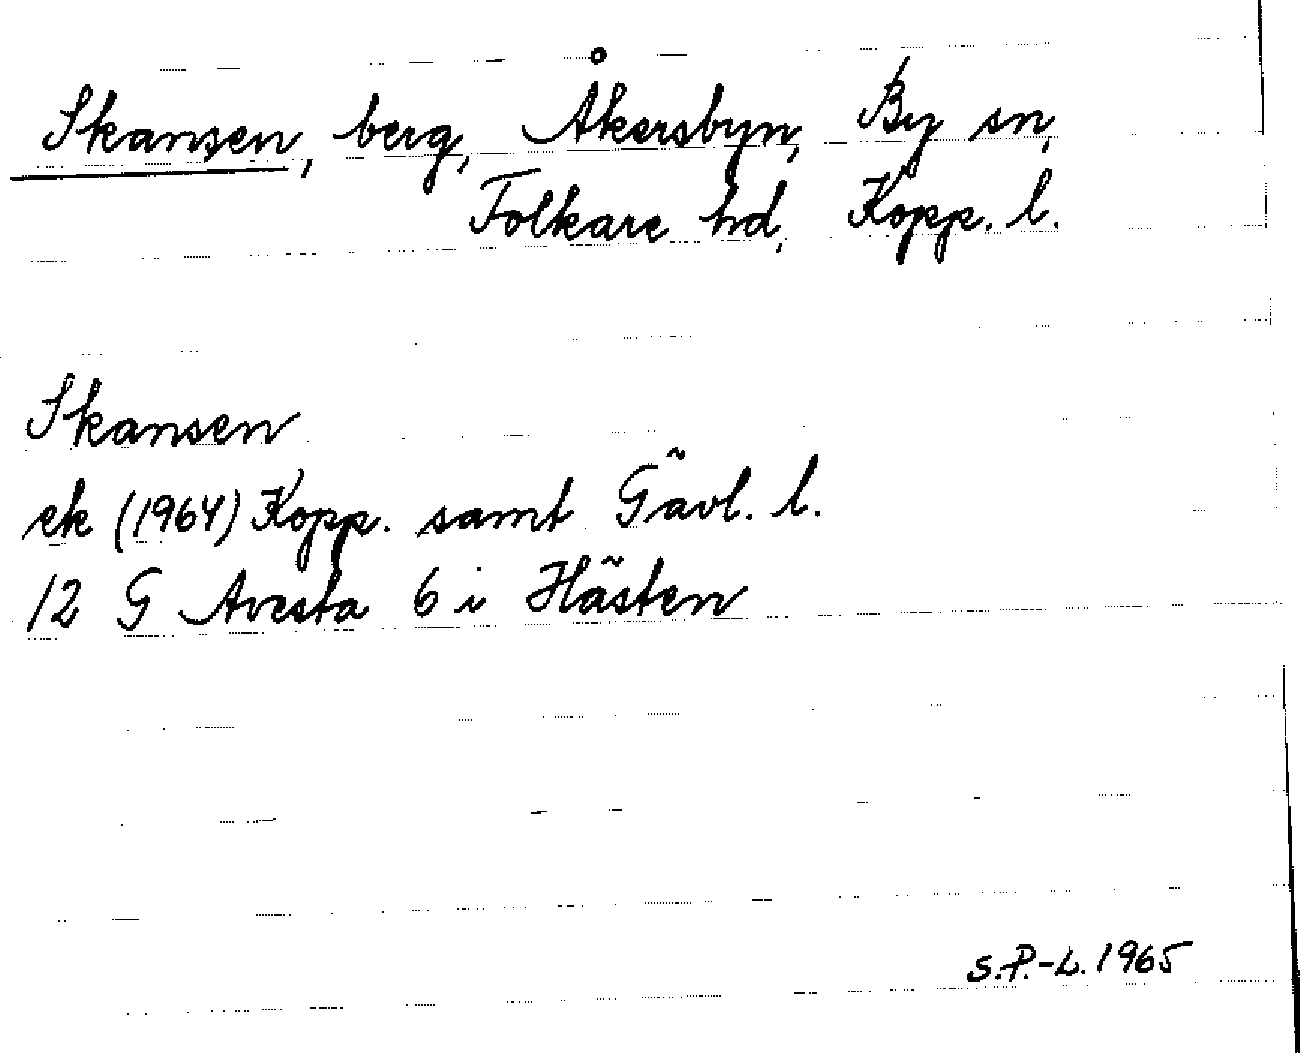 Skansen, berg, Åkersbyn, By sn,
Folkare hd, Kopp. l.
Skansen
ek (1964) Kopp. samt Gävl. l.
12 G Avesta 6 i Hästen
S.P.-L. 1965